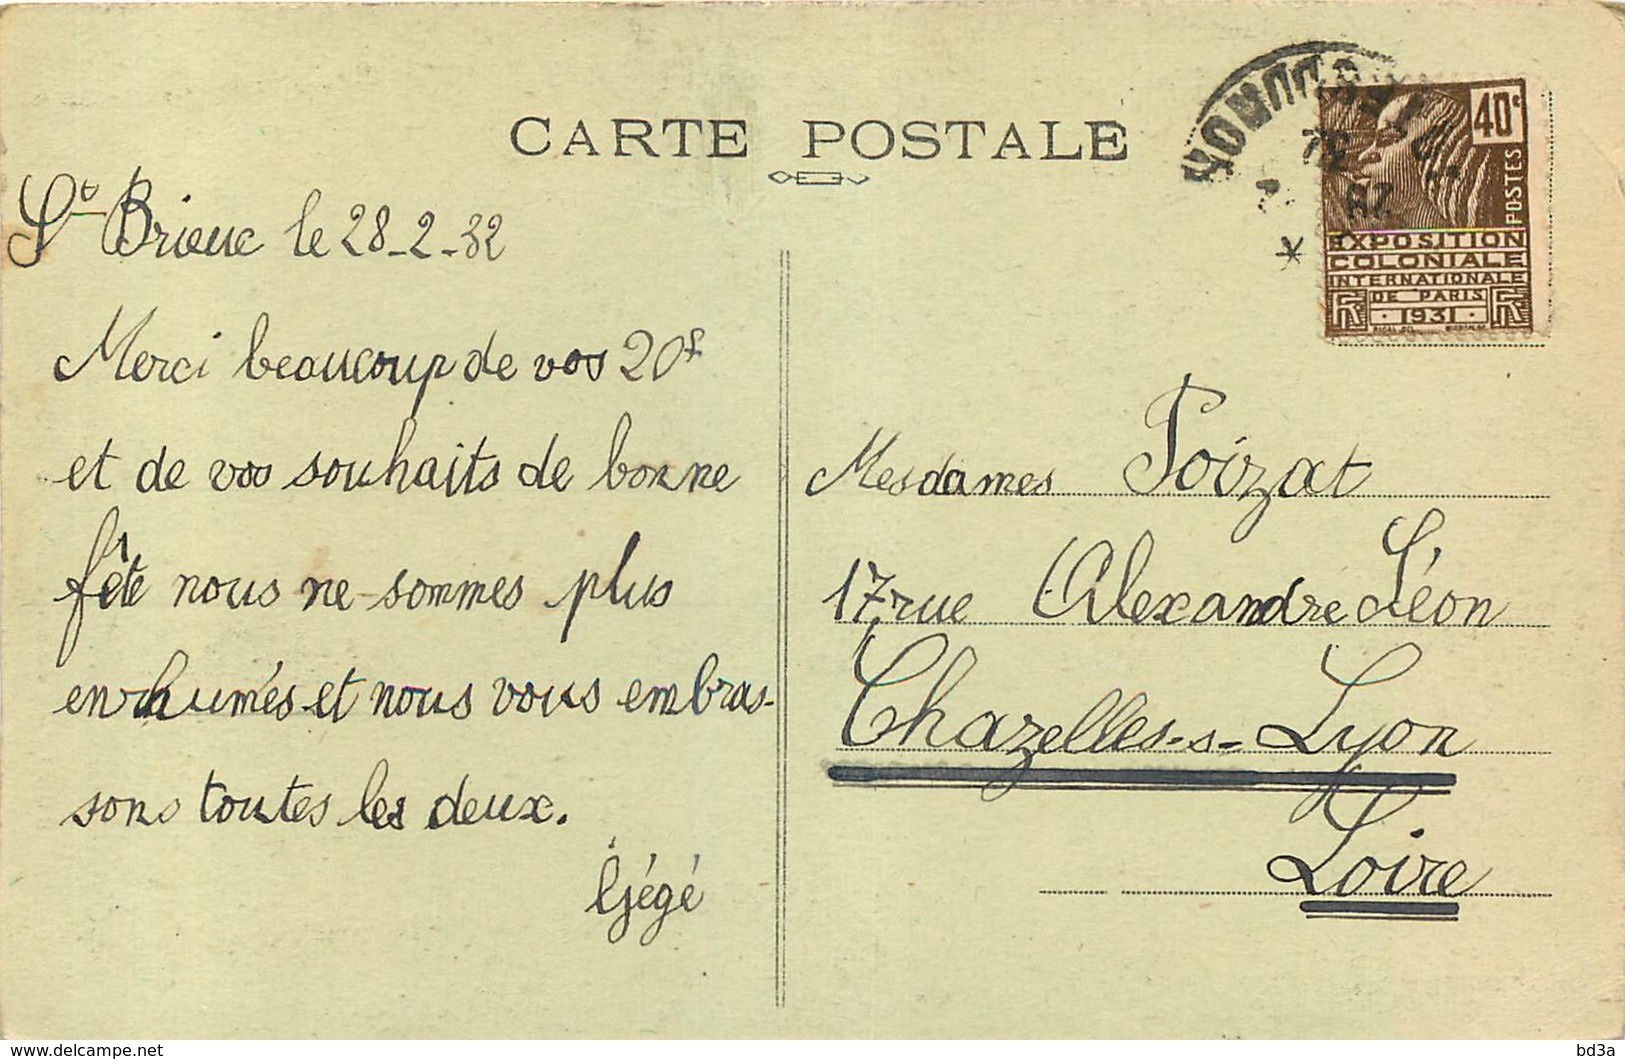 CARTE POSTALE
St Brieuc le 28-2-32
Merci beaucoup de vos 20f
et de vos souhaits de bonne
fête nous ne sommes plus
enrhumés et nous vous embras-
sons toutes les deux.
Gégé
40c
POSTES
EXPOSITION
COLONIALE
INTERNATIONALE
DE PARIS
RF · 1931 · RF
Mesdames Poizat
17 rue Alexandre Léon
Chazelles-s-Lyon
Loire
www.delcampe.net
bd3a